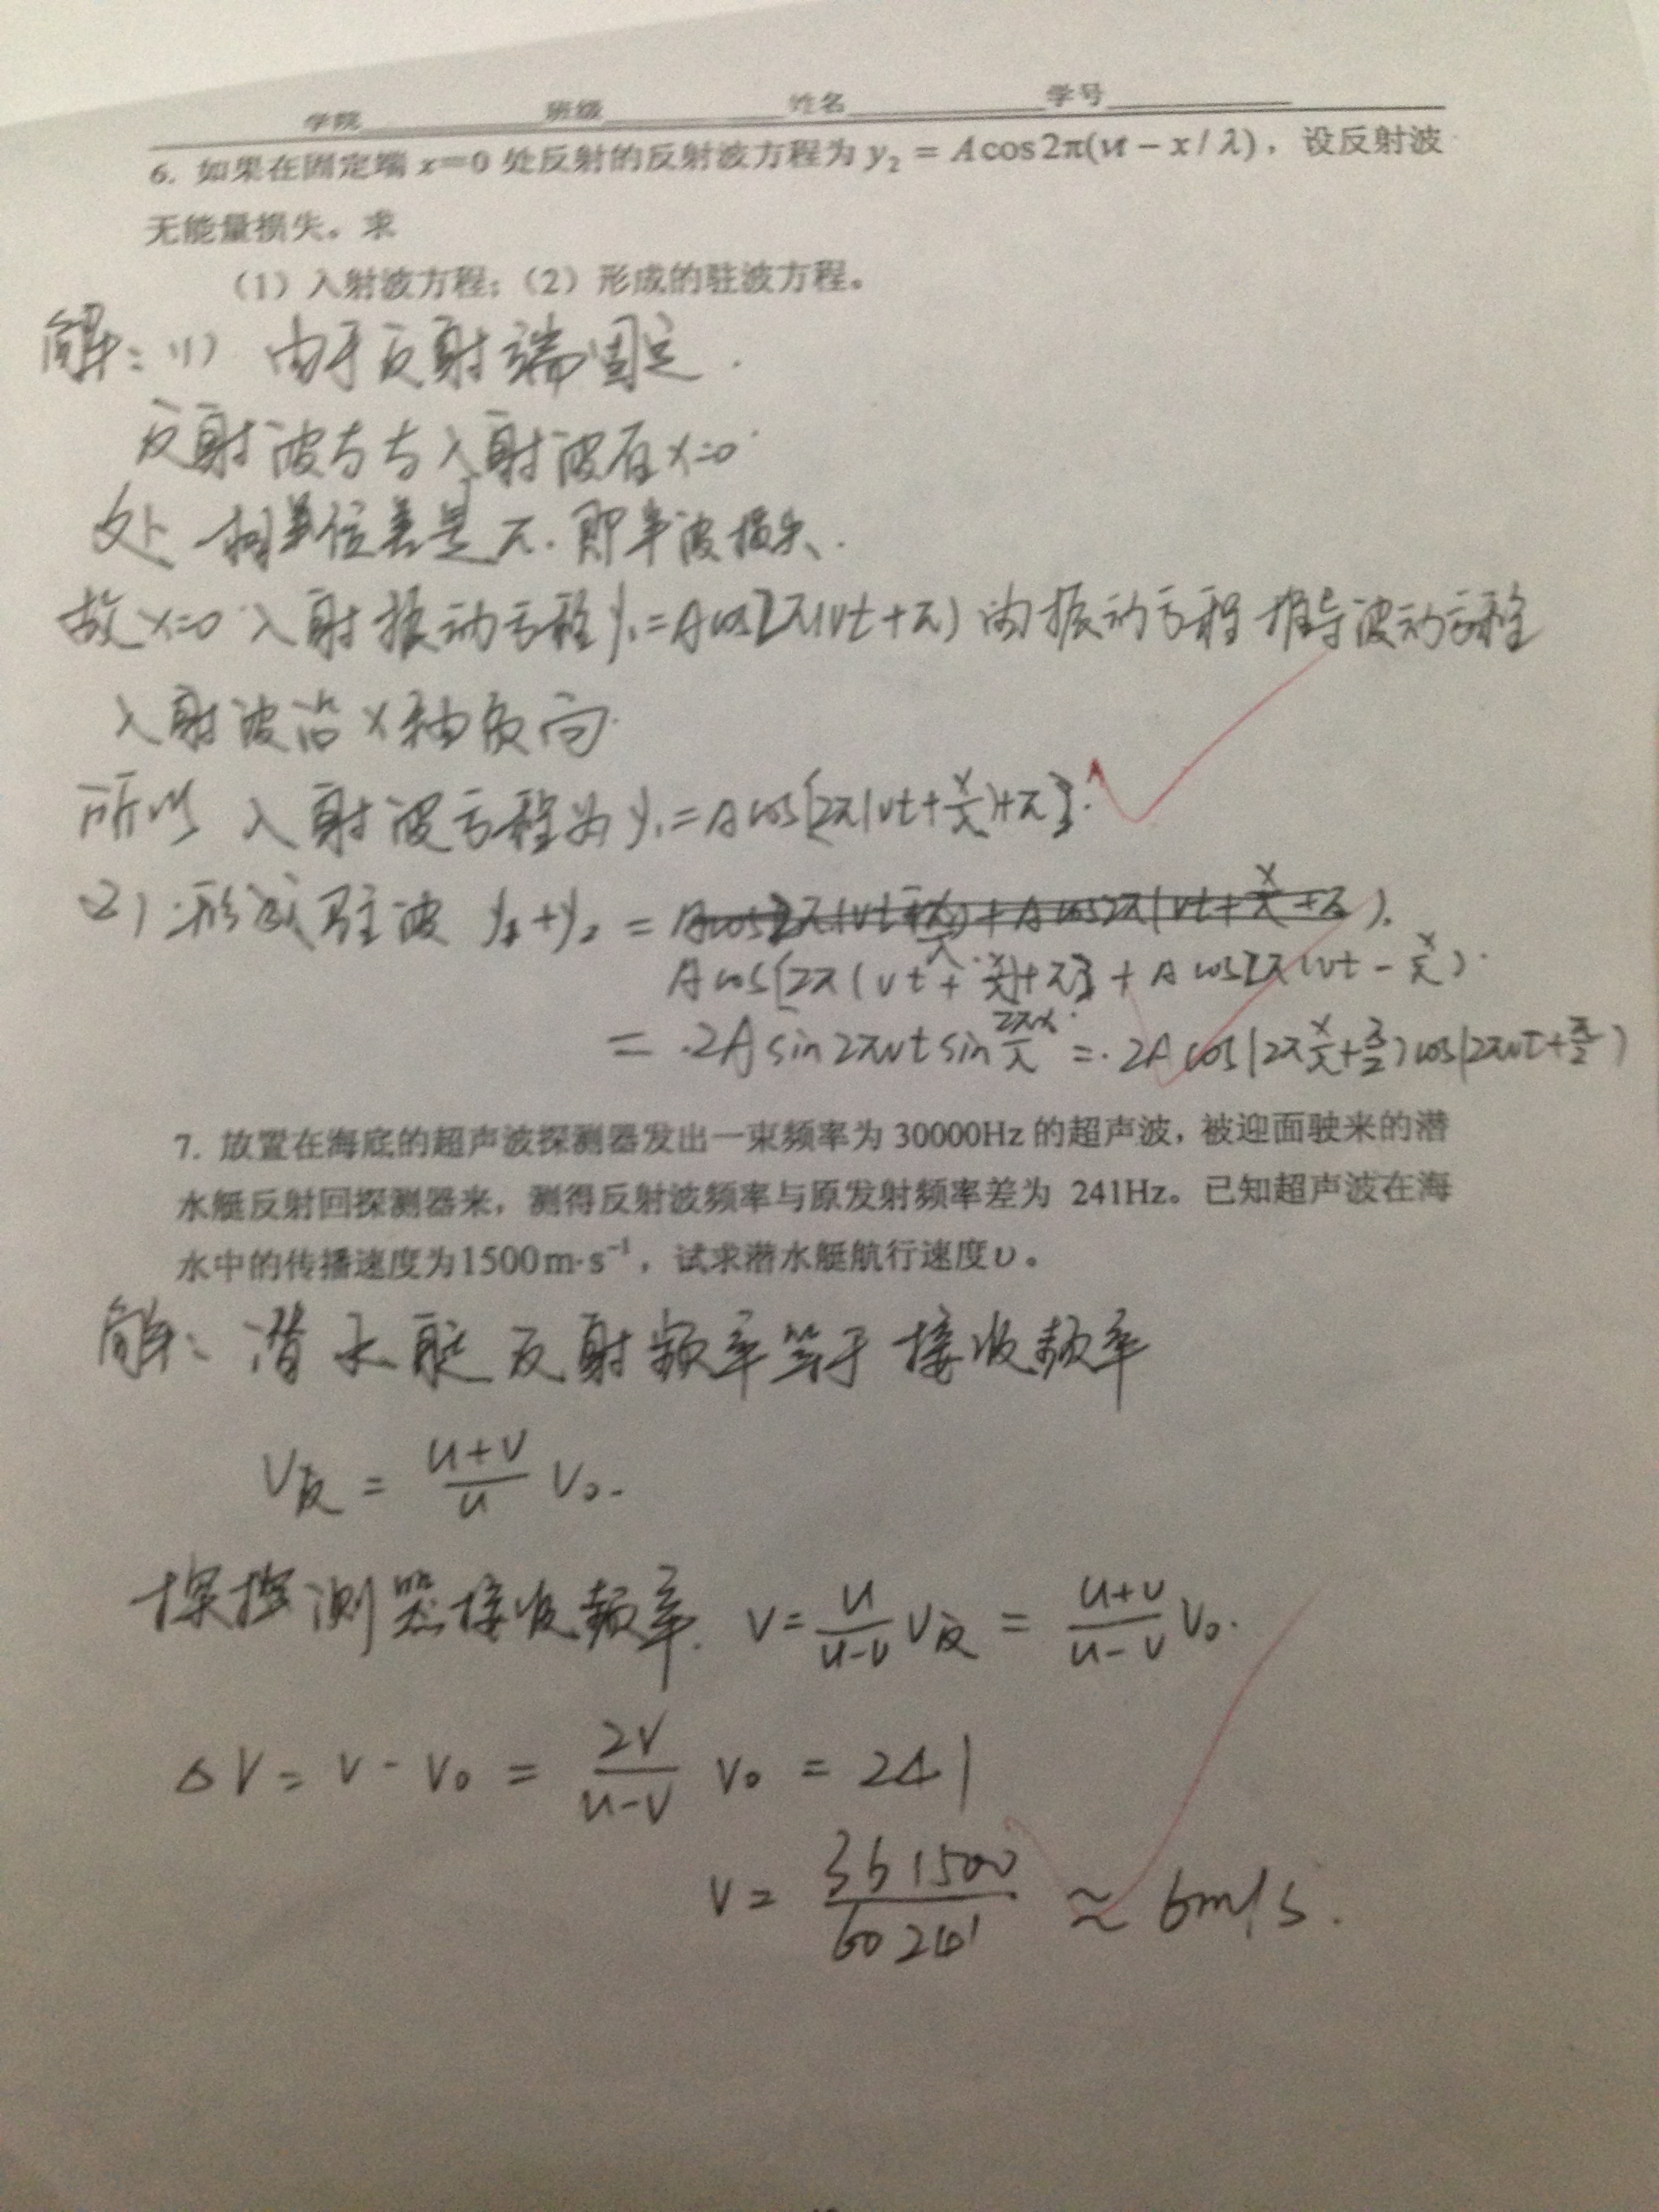 学院 班级 姓名 学号
6. 如果在固定端 x=0 处反射的反射波方程为 y₂ = A cos 2π(νt − x / λ)，设反射波
无能量损失。求
（1）入射波方程;（2）形成的驻波方程。
解：(1) 由于反射端固定.
反射波与与入射波在x=0
处 相位差是π. 即半波损失.
故x=0 入射振动方程y₁=Acos2π(νt+π) 由振动方程推导波动方程
入射波沿x轴负向.
所以 入射波方程为y₁=Acos[2π(νt+x/λ)+π].
(2) 形成驻波 y₁+y₂ =
Acos[2π(νt+x/λ)+π] + Acos2π(νt−x/λ).
= 2A sin2πνt sin 2πx/λ = 2A cos(2πx/λ+π/2)cos(2πνt+π/2)
7. 放置在海底的超声波探测器发出一束频率为 30000Hz 的超声波，被迎面驶来的潜
水艇反射回探测器来，测得反射波频率与原发射频率差为 241Hz。已知超声波在海
水中的传播速度为1500m·s⁻¹，试求潜水艇航行速度υ。
解：潜水艇反射频率等于接收频率
ν反 = (u+v)/u ν₀.
测器接收频率. ν = u/(u−v) ν反 = (u+v)/(u−v) ν₀.
Δν = ν − ν₀ = 2v/(u−v) ν₀ = 241
v = 361500/60241 ≈ 6m/s.